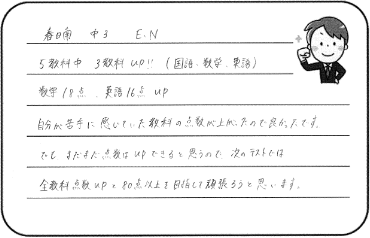 春日南 中3 E.N
5教科中 3教科UP!! (国語、数学、英語)
数学18点、英語16点 UP
自分が苦手に感じていた教科の点数が上がったので良かったです。
でも まだまだ点数はUPできると思うので 次のテストでは
全教科点数UPと80点以上を目指して頑張ろうと思います。